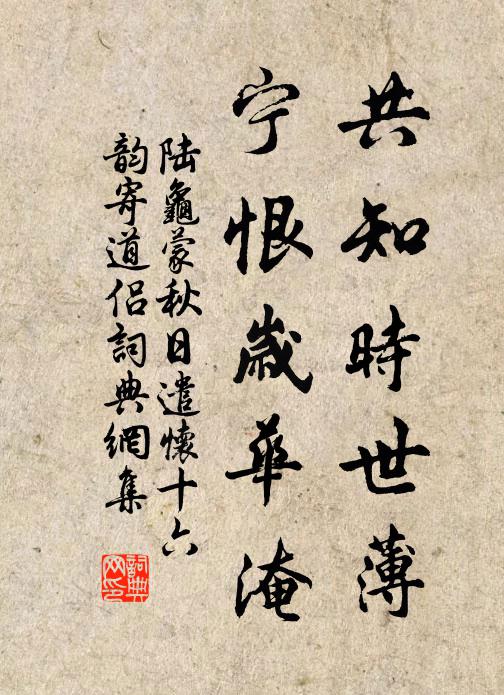 共知時世薄
宁恨歲華淹
陆龜蒙秋日遣懷十六
韵寄道侣詞典網集
詞典网印